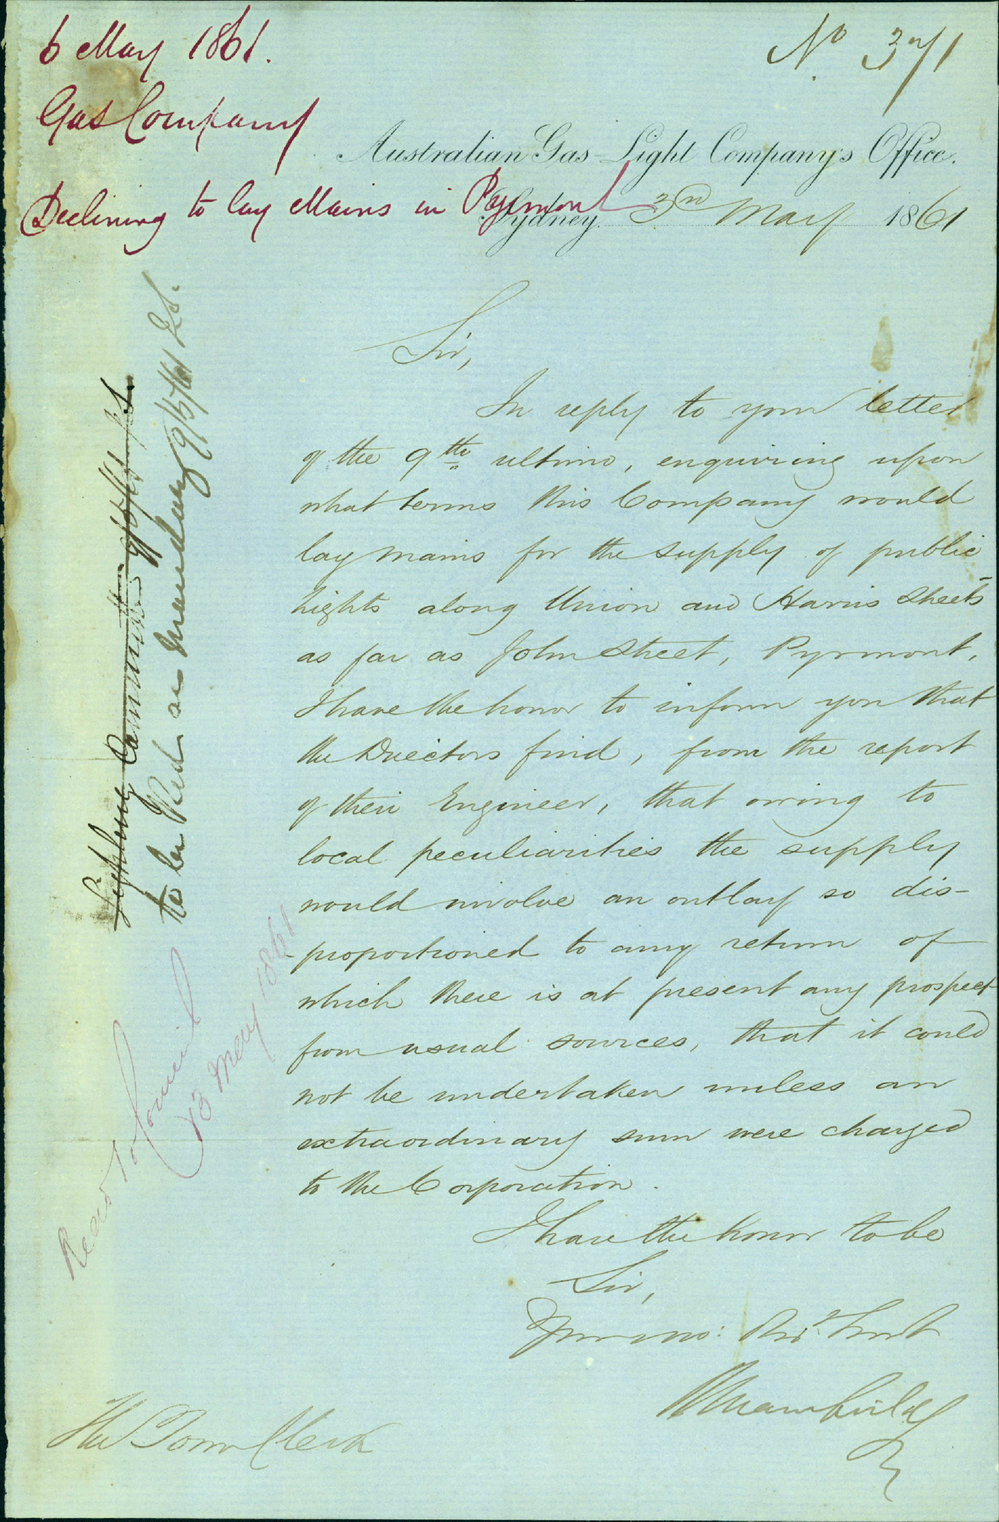 6 May 1861.
Gas Company
Declining to lay Mains in Pyrmont
No 371
Australian Gas-Light Company's Office.
Sydney 3rd May 1861
Sir,
In reply to your letter
of the 9th ultimo, enquiring upon
what terms this Company would
lay mains for the supply of public
lights along Union and Harris Streets
as far as John Street, Pyrmont,
I have the honor to inform you that
the Directors find, from the report
of their Engineer, that owing to
local peculiarities the supply
would involve an outlay so dis-
-proportioned to any return of
which there is at present any prospect
from usual sources, that it could
not be undertaken unless an
extraordinary sum were charged
to the Corporation.
I have the honor to be
Sir,
Your mo: Obt. Servt
The Town Clerk
Lighting Committee
to be Read on Monday
Read to Council
13 May 1861